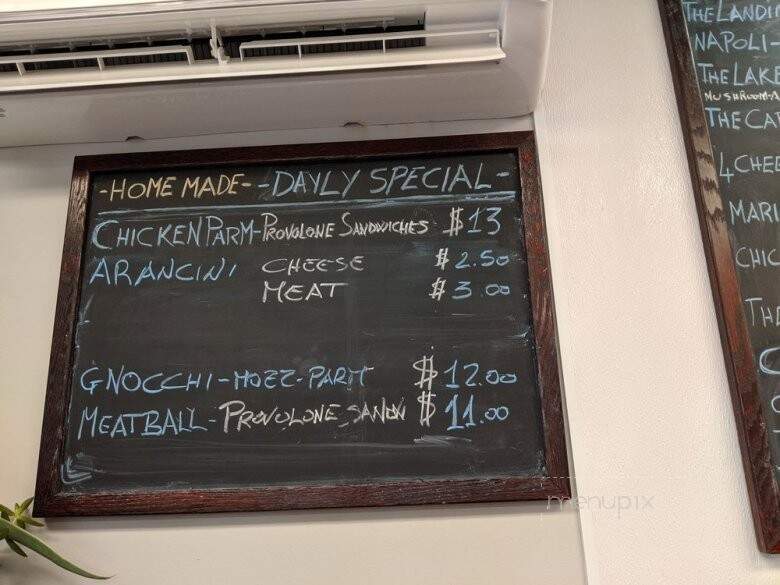 -HOME MADE- -DAYLY SPECIAL-
CHICKEN PARM-PROVOLONE SANDWICHES $13
ARANCINI CHEESE $2.50
MEAT $3.00
GNOCCHI-MOZZ-PARM $12.00
MEATBALL-PROVOLONE SANDW $11.00
menupix
THE
NAPOLI-
THE LAKE
MUSHROOM
THE
4 CHEE
MARI
CHIC
THE